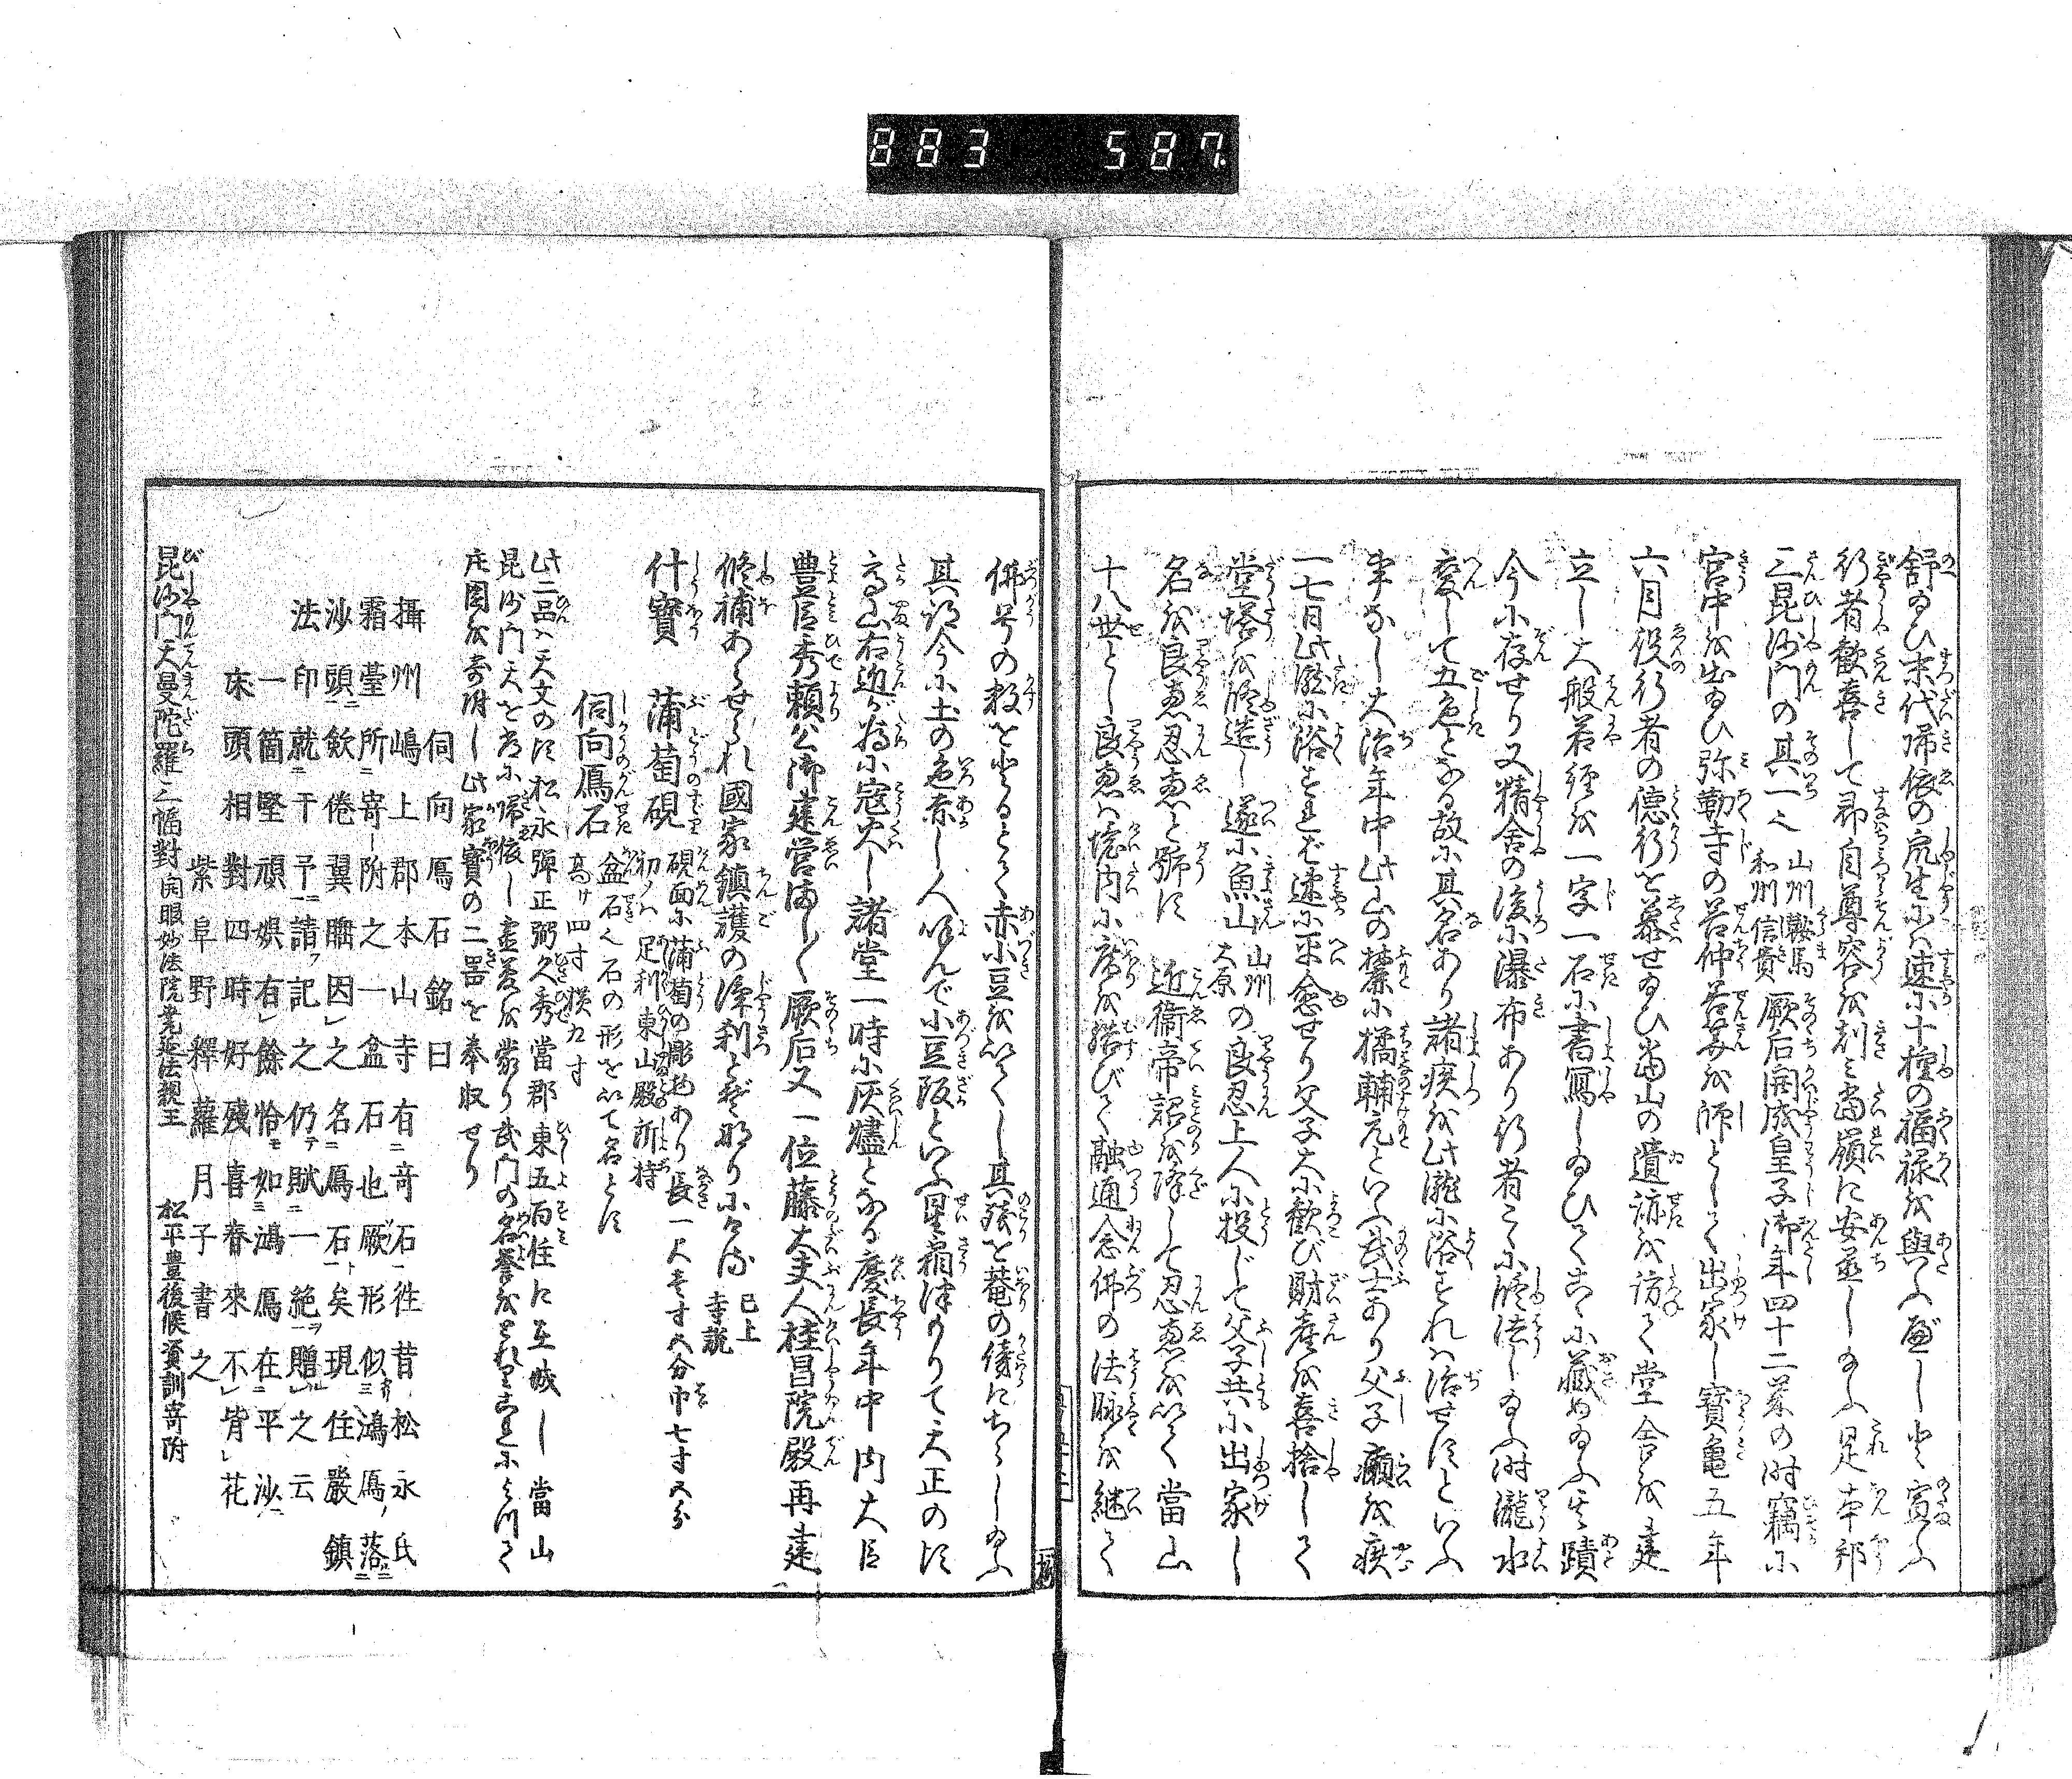 883 587
舒ゐひ末代帰依の衆生にハ速に十種の福禄を與ふ可しと宣ふ
行者歓喜して即自尊容を刻ミ当嶺に安置し給ふ是本邦
三毘沙門の其一也 山州鞍馬 和州信貴 厥后開成皇子御年四十二歳の時竊に
宮中を出給ひ弥勒寺の善仲善算を師として出家し寶亀五年
六月役行者の徳行を慕せ給ひ当山の遺跡を訪て堂舎を建
立し大般若経を一字一石に書寫し給ひてこゝに蔵め給ふ其蹟
今に存せり又精舎の後に瀑布あり行者こゝに修法し給ふ時瀧水
変して五色となる故に其名あり諸疾を此瀧に浴すれハ治せずといふ
事なし大治年中此山の麓に橘輔元といふ武士あり父子癩を疾
一七日此瀧に浴すれば速に平愈せり父子大に歓び財産を喜捨して
堂塔を修造し遂に魚山 山州 大原 の良忍上人に投じて父子共に出家し
名を良恵忍恵と號す 近衞帝詔を降して忍恵を以て當山
十八世とし良恵ハ境内に庵を結びて融通念佛の法脉を継て
佛号の数をとるとて赤小豆を以てし其残を菴の傍にちらし給ふ
其跡今に土の色赤し人呼んで小豆阪といふ星霜津もりて天正の頃
高山右近が為に寇火し諸堂一時に灰燼となる慶長年中内大臣
豊臣秀頼公御建営まし〳〵厥后又一位藤大夫人桂昌院殿再建
修補あらせられ國家鎮護の浄刹とぞ成りにける 已上 寺説
什寳 蒲萄硯 硯面に蒲萄の彫物あり長一尺壱寸五分巾七寸五分
初ハ足利東山殿所持
伺向鴈石 盆石也石の形を以て名とす
高け四寸横九寸
此二品ハ天文の頃松永弾正弼久秀當郡東五百住に在城し當山
毘沙門天を常に帰依し霊益を蒙り武門の名誉を
庄園を寄附し此家寶の二器を奉収せり
伺向鴈石銘曰
攝州嶋上郡本山寺有奇石往昔松永氏
霜臺所寄附之一盆石也厥形似鴻鴈落
沙頭歛倦翼腦因之名鴈石矣現住嚴鎮
法印就干予請記之仍賦一絶贈之云
一箇堅頑娯有餘恰如鴻鴈在平沙
床頭相對四時好殘喜春來不背花
紫阜野釋蘿月子書之
毘沙門天曼陀羅二幅對 開眼妙法院尭延法親王 松平豊後候資訓寄附